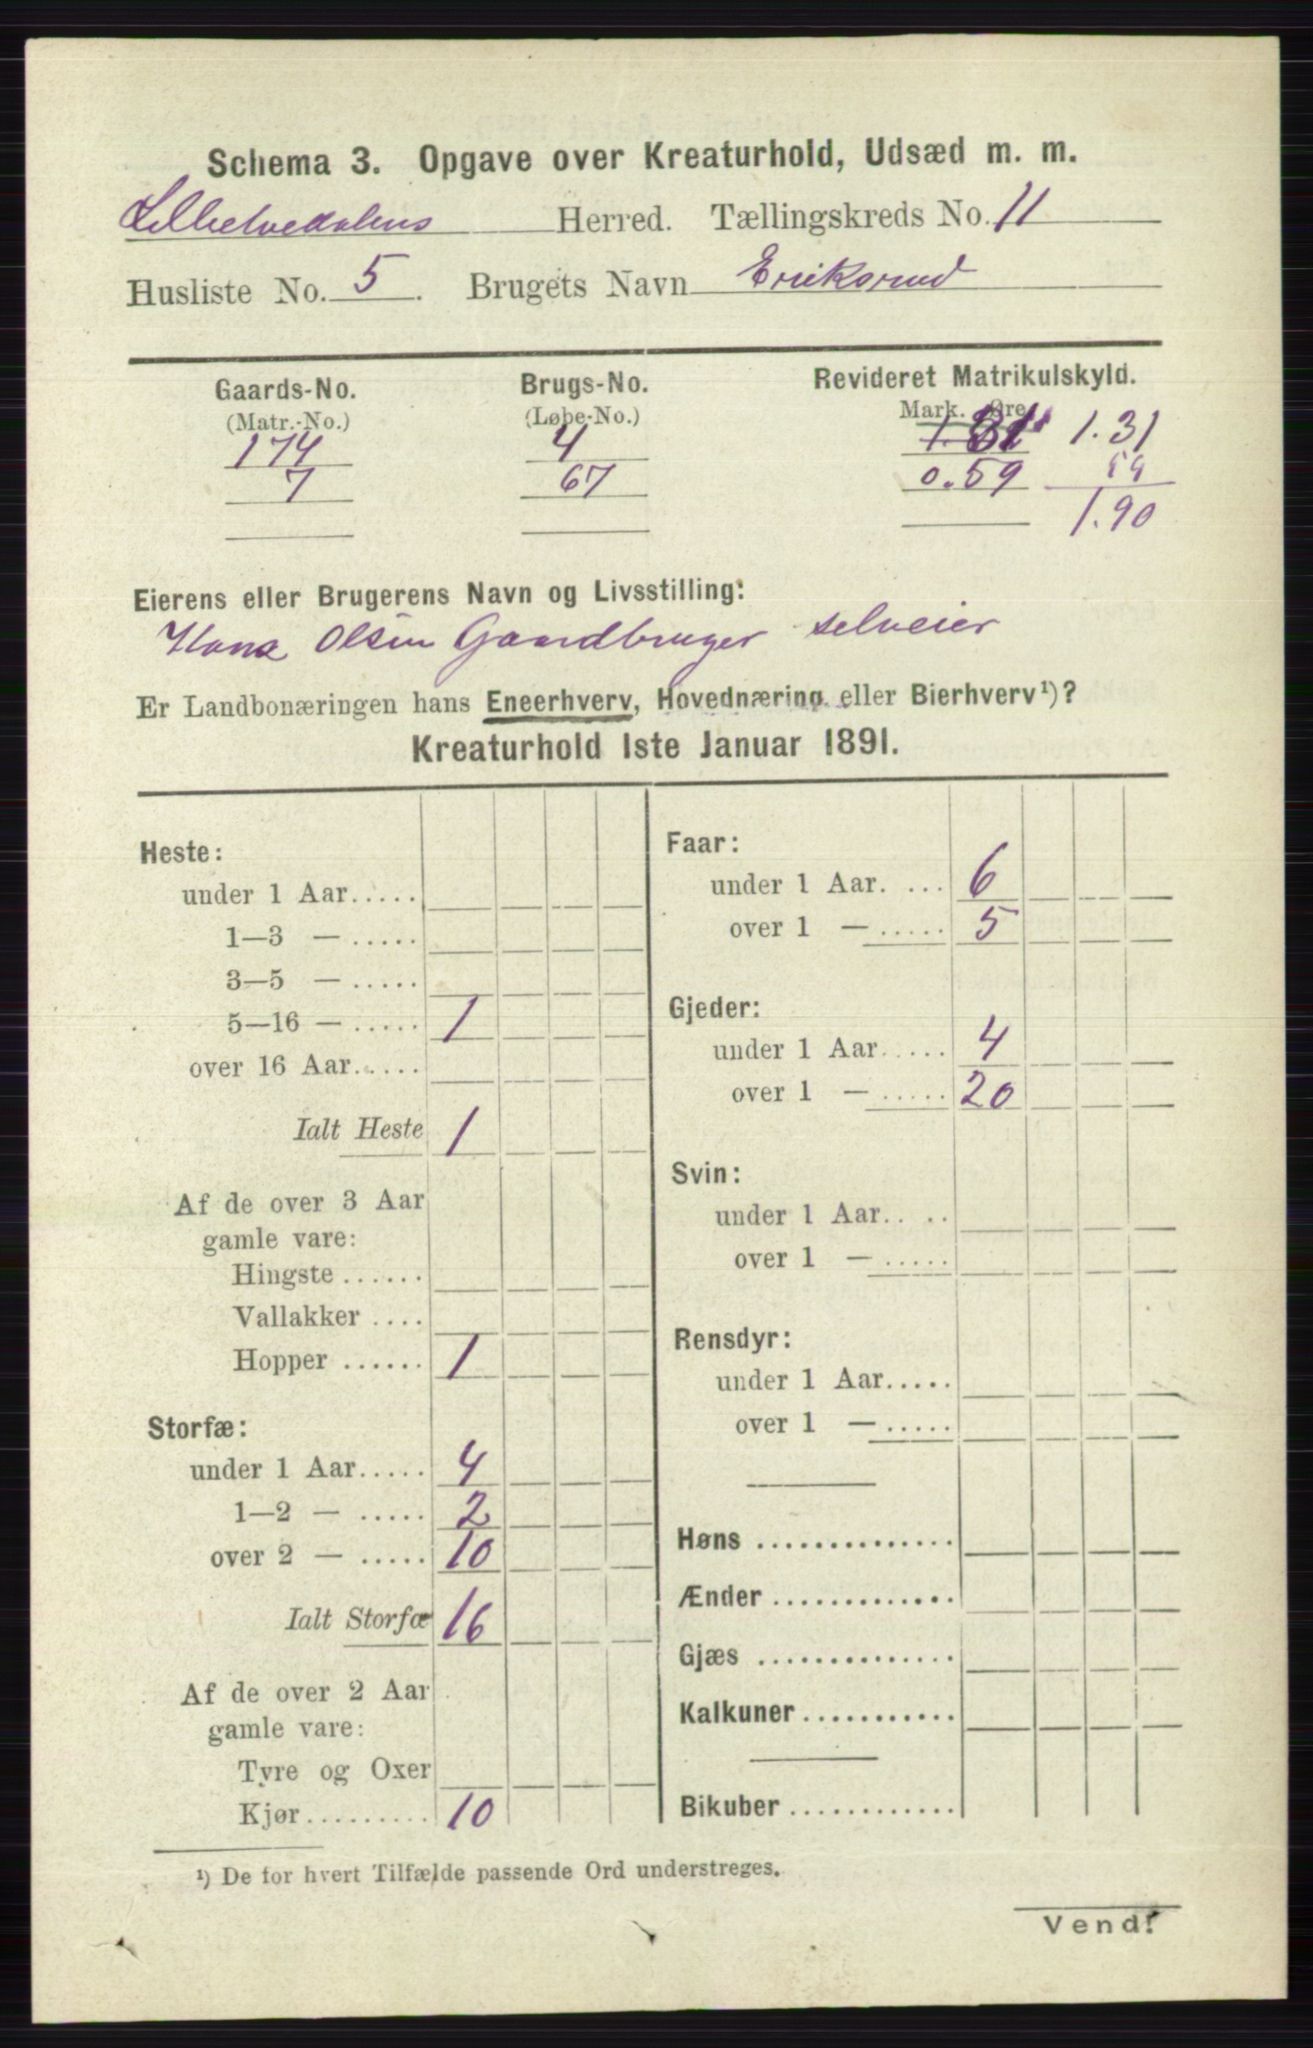 Schema 3. Opgave over Kreaturhold, Udsæd m. m.
Herred. Tællingskreds No. 11
Husliste No. 5. Brugets Navn Eriksrud
Gaards-No. Brugs-No. Revideret Matrikulskyld.
(Matr.-No.) (Løbe-No.) Mark. Øre
174 4 1.31
7 67 0.59 59
1.90
Eierens eller Brugerens Navn og Livsstilling:
Hans Olsen Gaardbruger selveier
Er Landbonæringen hans Eneerhverv, Hovednæring eller Bierhverv¹)?
Kreaturhold 1ste Januar 1891.
Heste:
under 1 Aar.....
1—3 — .....
3—5 — .....
5—16 — ..... 1
over 16 Aar.....
Ialt Heste 1
Af de over 3 Aar
gamle vare:
Hingste ......
Vallakker ....
Hopper ...... 1
Storfæ:
under 1 Aar..... 4
1—2 — ..... 2
over 2 — ..... 10
Ialt Storfæ 16
Af de over 2 Aar
gamle vare:
Tyre og Oxer
Kjør......... 10
Faar:
under 1 Aar. ... 6
over 1 — ..... 5
Gjeder:
under 1 Aar..... 4
over 1 — ..... 20
Svin:
under 1 Aar.. ..
over 1 — .....
Rensdyr:
under 1 Aar.....
over 1 — .....
Høns ..............
Ænder .............
Gjæs ..............
Kalkuner ...........
Bikuber ............
¹) De for hvert Tilfælde passende Ord understreges.
Vend!